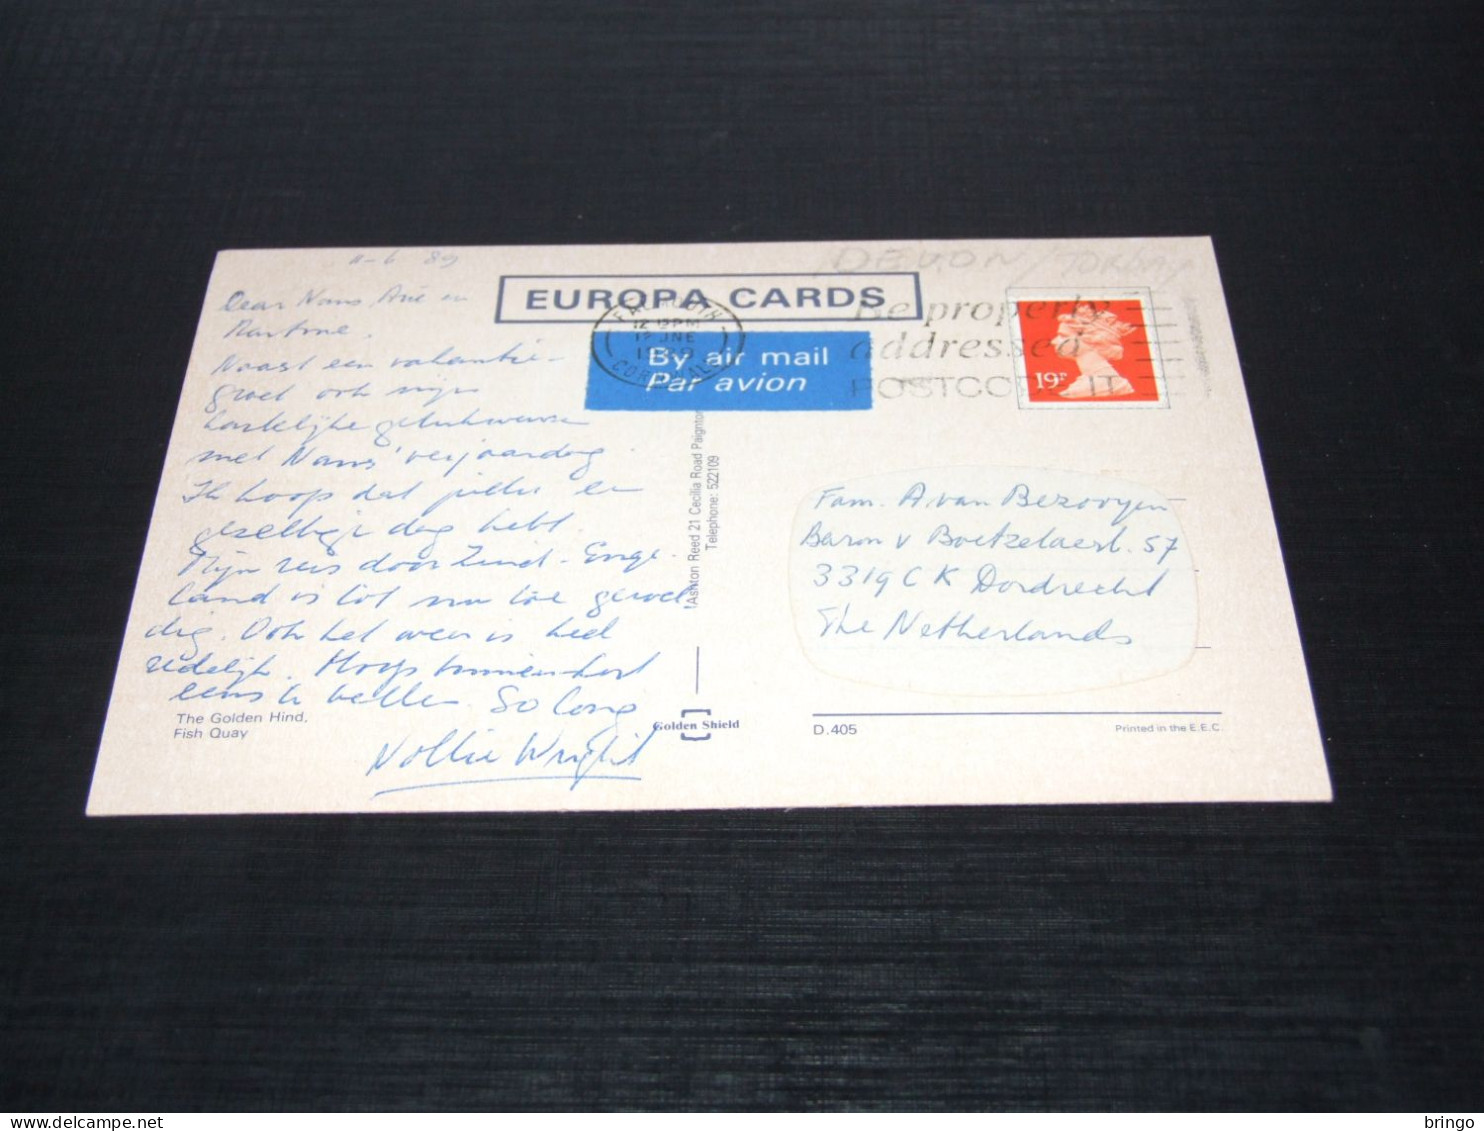 11-6 89
Dear Nans Arie en
Martine.
Naast een vakantie-
groet ook mijn
hartelijke gelukwensen
met Nans' verjaardag.
Ik hoop dat jullie een
gezellige dag hebt.
Mijn reis door Zuid-Enge-
land is tot nu toe gewel-
dig. Ook het weer is heel
redelijk.
eens te bellen. So long
Nollie Wright
The Golden Hind,
Fish Quay
EUROPA CARDS
FALMOUTH
12 PM
JNE
CORNWALL
By air mail
Par avion
DEVON / TORBAY
Be properly
addressed
POSTCODE IT
19P
Ashton Reed 21 Cecilia Road Paignton
Telephone: 522109
Golden Shield
Fam. A. van Bezooyen
Baron v Boetzelaerl. 57
3319 CK Dordrecht
The Netherlands
D.405
Printed in the E.E.C.
bringo